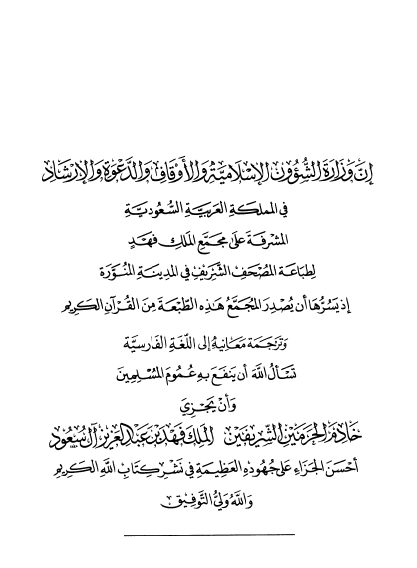 إنَّ وَزَارَةَ الشُّؤُونِ الإِسْلَامِيَّةِ وَالأَوْقَافِ وَالدَّعْوَةِ وَالإِرْشَادِ
فِي المملكَةِ العَرَبِيَّةِ السُّعُودِيَّةِ
المُشْرِفَةَ عَلَىٰ مُجَمَّعِ المَلِكِ فَهْدٍ
لِطِبَاعَةِ المُصْحَفِ الشَّرِيفِ فِي المَدِينَةِ المُنَوَّرَةِ
إِذ يَسُرُّهَا أَن يُصْدِرَ المُجَمَّعُ هَذِهِ الطَّبْعَةَ مِنَ القُرْآنِ الكَرِيمِ
وَتَرْجَمَةَ مَعَانِيهِ إِلى اللُّغَةِ الفَارِسِيَّةِ
تَسْأَلُ اللَّهَ أَن يَنفَعَ بِهِ عُمُومَ المُسْلِمِينَ
وَأَنْ يَجْزِيَ
خَادِمَ الحَرَمَيْنِ الشَّرِيفَيْنِ المَلِكَ فَهْدَ بْنَ عَبْدِ العَزِيزِ آل سُعُود
أَحْسَنَ الجَزَاءِ عَلَىٰ جُهُودِهِ العَظِيمَةِ فِي نَشْرِ كِتَابِ اللَّهِ الكَرِيمِ
وَاللَّهُ وَلِيُّ التَّوْفِيقِ